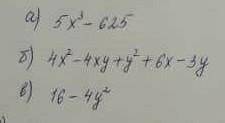 а) 5x³ - 625
б) 4x² - 4xy + y² + 6x - 3y
в) 16 - 4y²